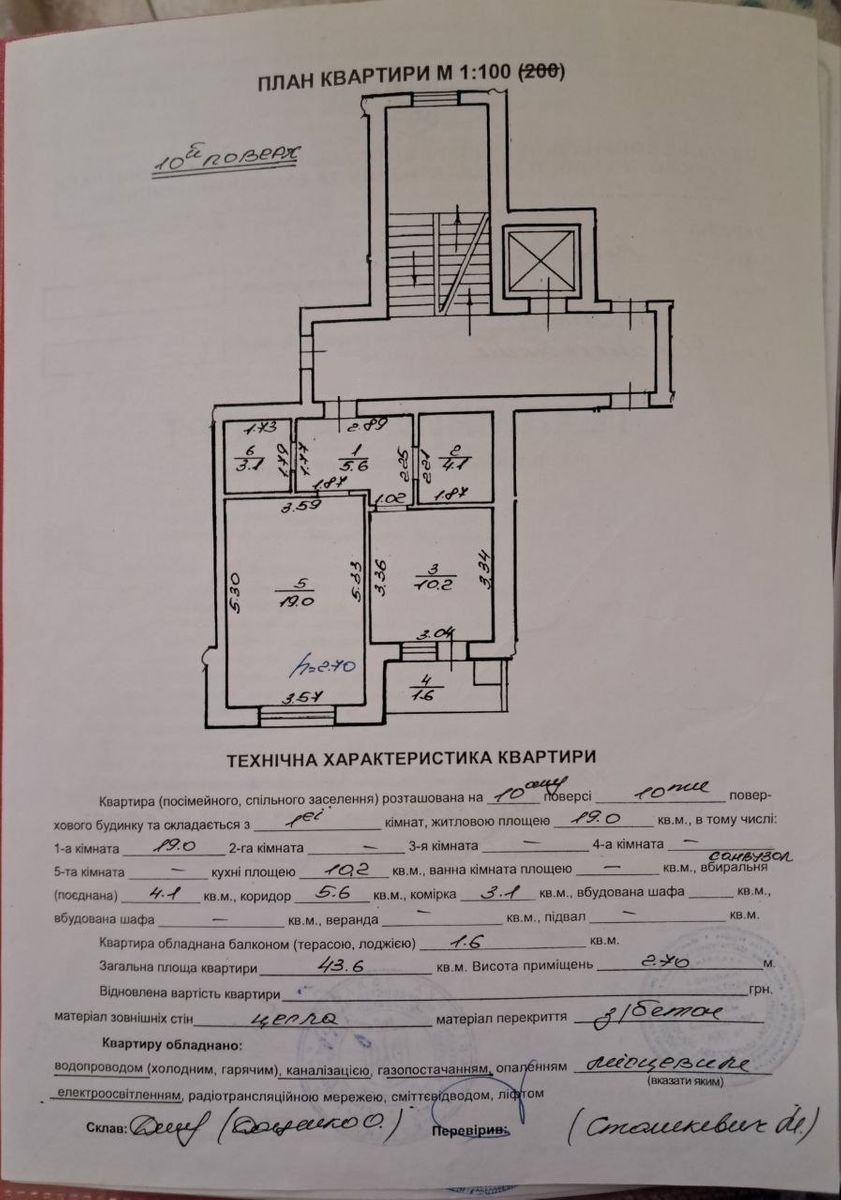 ПЛАН КВАРТИРИ М 1:100 (200)
10й поверх
1.73
2.89
6
3.1
1.79
1.77
1
5.6
2.25
2.21
2
4.1
1.87
1.02
1.87
3.59
5.30
5
19.0
5.33
3.36
3
10.2
3.34
h=2.70
3.04
3.57
4
1.6
ТЕХНІЧНА ХАРАКТЕРИСТИКА КВАРТИРИ
Квартира (посімейного, спільного заселення) розташована на 10ому поверсі 10ти повер-
хового будинку та складається з 1єї кімнат, житловою площею 19.0 кв.м., в тому числі:
1-а кімната 19.0 2-га кімната — 3-я кімната — 4-а кімната —
5-та кімната — кухні площею 10,2 кв.м., ванна кімната площею — кв.м., вбиральня санвузол
(поєднана) 4.1 кв.м., коридор 5.6 кв.м., комірка 3.1 кв.м., вбудована шафа кв.м.,
вбудована шафа — кв.м., веранда — кв.м., підвал — кв.м.
Квартира обладнана балконом (терасою, лоджією) 1.6 кв.м.
Загальна площа квартири 43.6 кв.м. Висота приміщень 2.70 м.
Відновлена вартість квартири грн.
матеріал зовнішніх стін цегла матеріал перекриття з/бетон
Квартиру обладнано:
водопроводом (холодним, гарячим), каналізацією, газопостачанням, опаленням місцевим
(вказати яким)
електроосвітленням, радіотрансляційною мережею, сміттєвідводом, ліфтом
Склав: Перевірив: